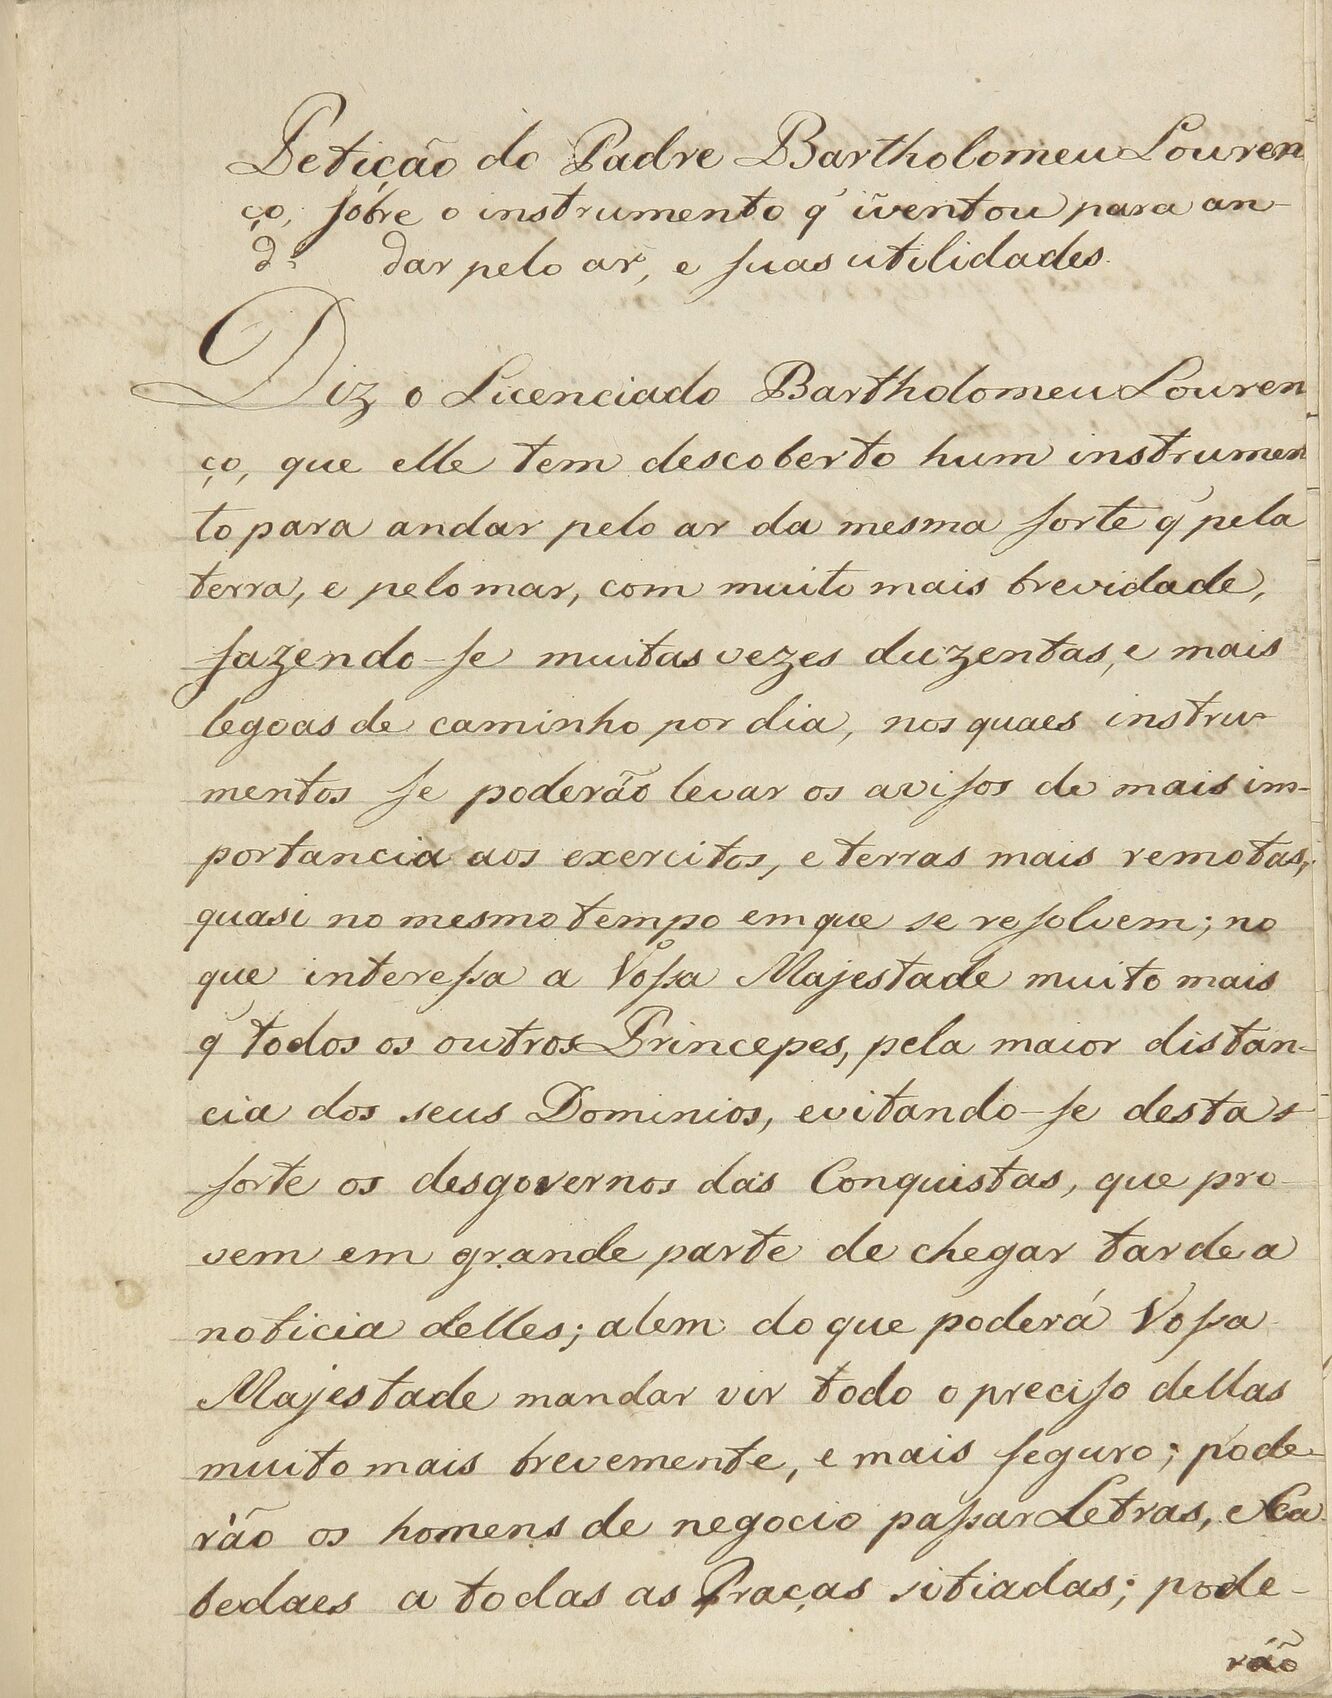 Petição do Padre Bartholomeu Louren
ço, sobre o instrumento q̃ iũventou para an-
dar pelo ar, e suas utilidades.
Diz o Licenciado Bartholomeu Louren
ço, que elle tem descoberto hum instrumen
to para andar pelo ar da mesma sorte q̃ pela
terra, e pelo mar, com muito mais brevidade,
fazendo-se muitas vezes duzentas, e mais
legoas de caminho por dia, nos quaes instru-
mentos se poderão levar os avisos de mais im-
portancia aos exercitos, e terras mais remotas,
quasi no mesmo tempo em que se resolvem; no
que interessa a Vossa Majestade muito mais
q̃ todos os outros Princepes, pela maior distan-
cia dos seus Dominios, evitando-se desta
sorte os desgovernos das Conquistas, que pro-
vem em grande parte de chegar tarde a
noticia delles; alem do que poderá Vossa
Majestade mandar vir todo o preciso dellas
muito mais brevemente, e mais seguro; pode-
rão os homens de negocio passar Letras, e Ca
bedaes a todas as Praças sitiadas; pode-
rão